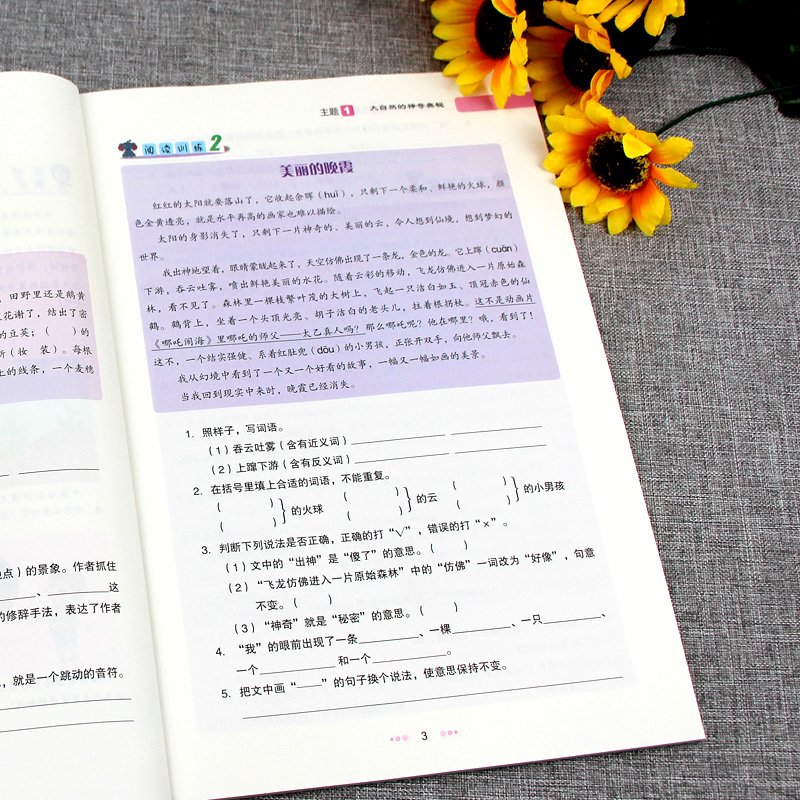 田野里还是鹅黄
花谢了，结出了密
的豆荚；（ ）的
新（妆 装）。每根
上的线条，一个麦穗
点）的景象。作者抓住
、________这
的修辞手法，表达了作者
，就是一个跳动的音符。
主题1 大自然的神奇奥秘
阅读训练2
美丽的晚霞
红红的太阳就要落山了，它收起余晖（huī），只剩下一个柔和、鲜艳的火球，颜
色金黄透亮，就是水平再高的画家也难以描绘。
太阳的身影消失了，只剩下一片神奇的、美丽的云，令人想到仙境，想到梦幻的
世界。
我出神地望着，眼睛蒙眬起来了，天空仿佛出现了一条龙，金色的龙。它上蹿（cuān）
下游，吞云吐雾，喷出鲜艳美丽的水花。随着云彩的移动，飞龙仿佛进入一片原始森
林，看不见了。森林里一棵枝繁叶茂的大树上，飞起一只洁白如玉、顶冠赤色的仙
鹤。鹤背上，坐着一个头顶光亮、胡子洁白的老头儿，拄着根拐杖。这不是动画片
《哪吒闹海》里哪吒的师父——太乙真人吗？那么哪吒呢？他在哪里？哦，看到了！
这不，一个结实强健、系着红肚兜（dōu）的小男孩，正张开双手，向他师父飘去。
我从幻境中看到了一个又一个好看的故事，一幅又一幅如画的美景。
当我回到现实中来时，晚霞已经消失。
1. 照样子，写词语。
（1）吞云吐雾（含有近义词）________ ________
（2）上蹿下游（含有反义词）________ ________
2. 在括号里填上合适的词语，不能重复。
（ ） （ ） （ ）
的火球 的云 的小男孩
（ ） （ ） （ ）
3. 判断下列说法是否正确，正确的打“√”，错误的打“×”。
（1）文中的“出神”是“傻了”的意思。（ ）
（2）“飞龙仿佛进入一片原始森林”中的“仿佛”一词改为“好像”，句意
不变。（ ）
（3）“神奇”就是“秘密”的意思。（ ）
4. “我”的眼前出现了一条________、一棵________、一只________、
一个________和一个________。
5. 把文中画“——”的句子换个说法，使意思保持不变。
3